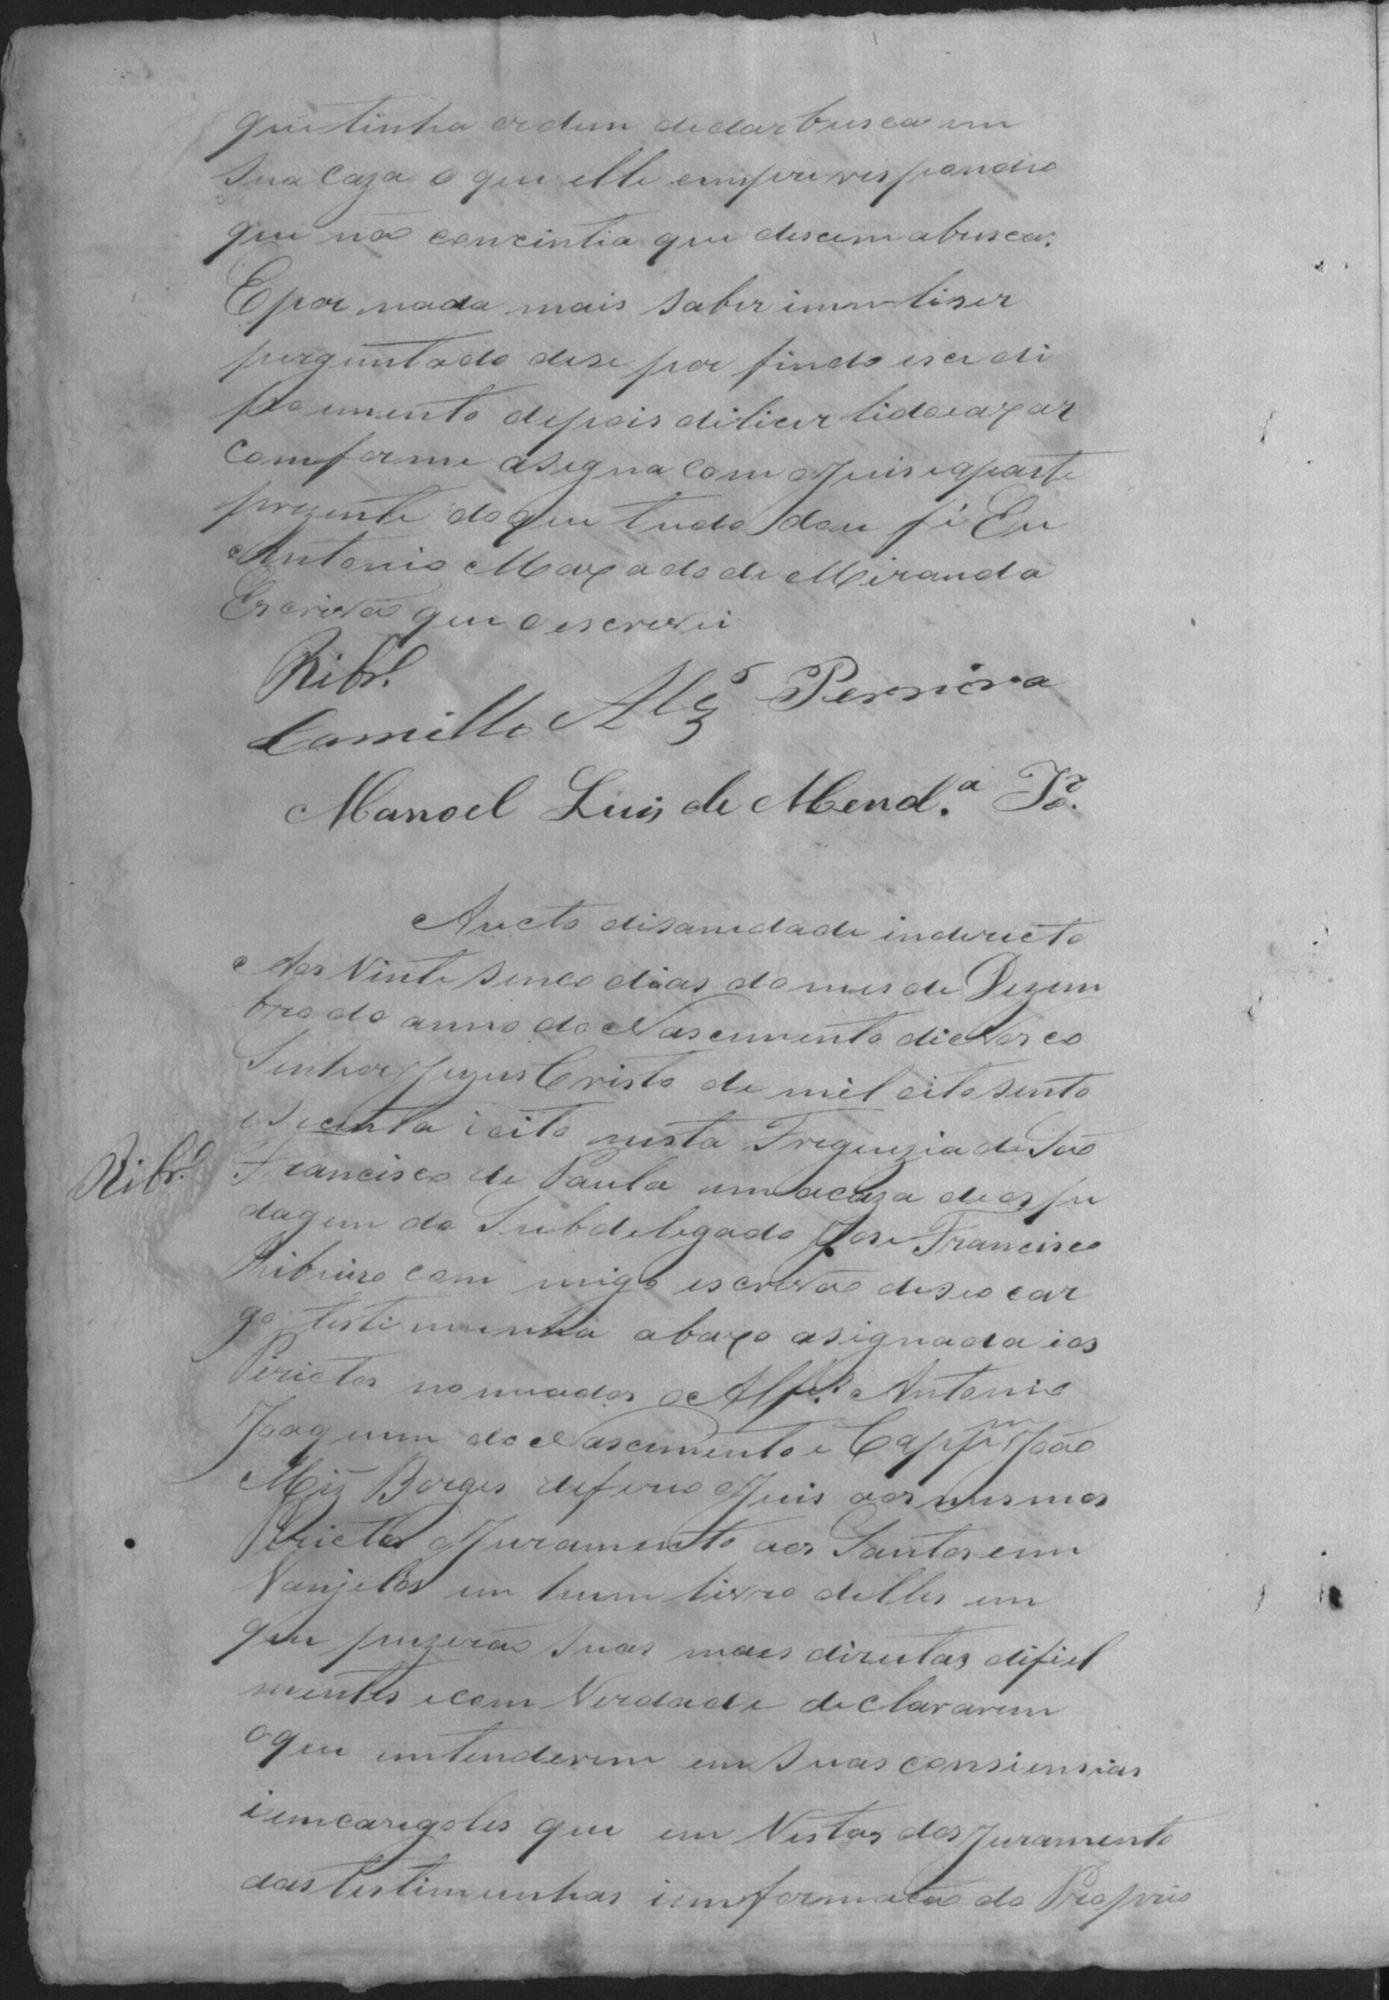 que tinha ordem de dar busca em
sua caza o que elle cempre respondio
que não concintia que desem a busca.
E por nada mais saber nem li ser
perguntado dise por findo ese di
poimento depois di li cer lido e axar
comforme asegna com o Juis e a parte
prezente do que tudo dou fé Eu
Antonio Maxado de Miranda
Escrivão que o escrevi
Ribr.º
Camillo Alz Perreira
Manoel Luis de Mend.ª
Aucto di sanidade inderecto
Aos Vinte sinco dias do mes de Dezem
bro do anno do Nascimento di Noso
Senhor Jezus Cristo de mil oito sento
e secenta i oito nesta Freguezia de São
Ribr.º
Francisco de Paula em a caza de ospe
dagem do Subdelegado Jose Francisco
Ribeiro com migo escrivão de seo car
go testimunha abaxo asignada i os
Perictos nomiados o Alfs. Antonio
Joaquim do Nascimento e Cappm João
Miz Borges deferio o Juis aos mesmos
Perictos o Juramento aos Santos em
Vanjelos em hum livro delles em
que puzerão suas maos direitas di fiel
mentes e com Verdade declararem
o que entenderem em suas consiensias
i emcaregoles que em Vistas dos Juramento
das testimunhas i emformacão do Proprio